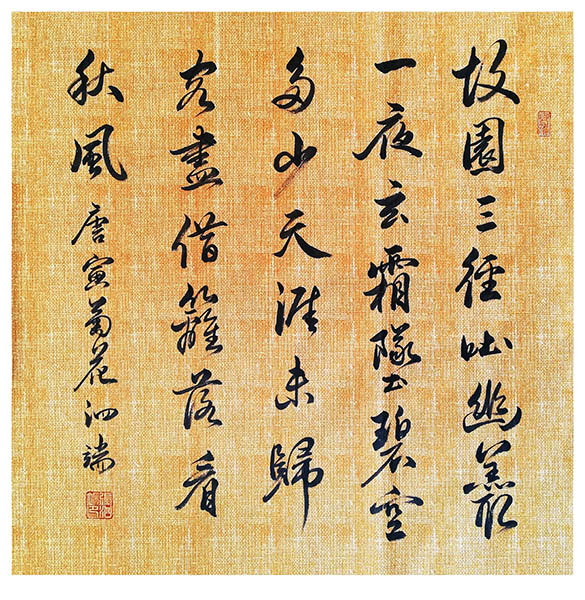 故園三徑吐幽叢
一夜玄霜墜碧空
多少天涯未歸
客盡借籬落看
秋風 唐寅菊花 泗端